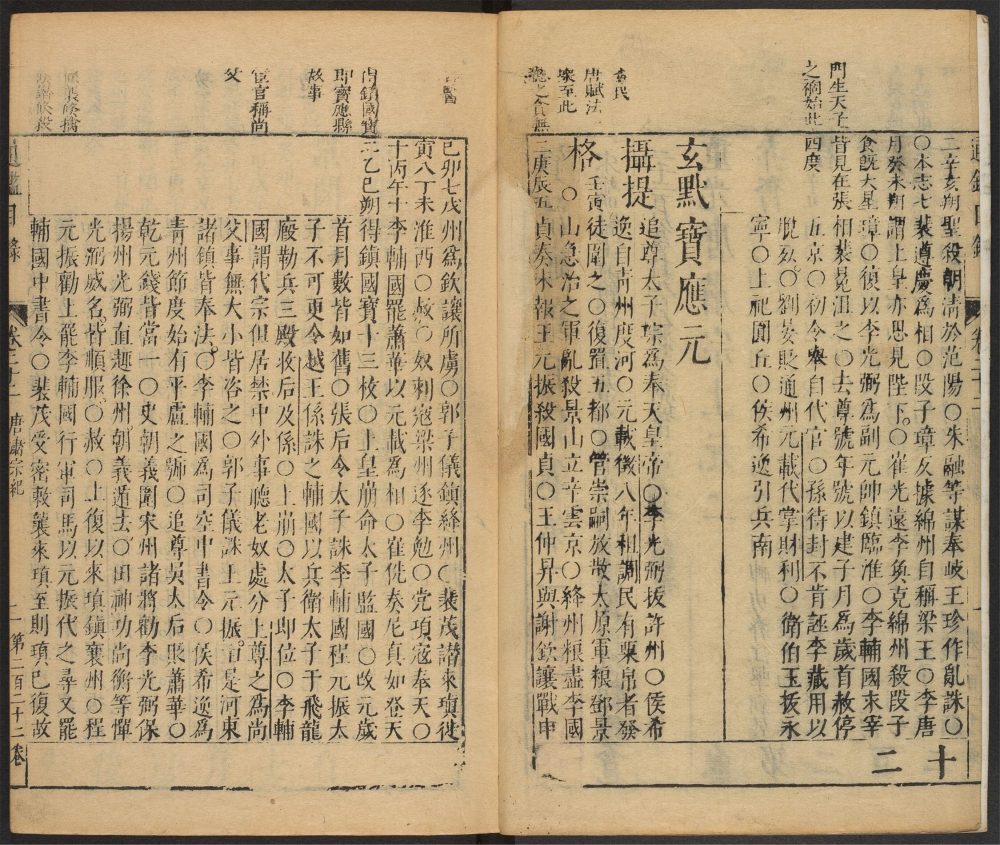 門生天子
之禍始此
二辛亥朔聖役朝清於范陽〇朱融等謀奉岐王珍作亂誅〇
〇本志七裴遵慶爲相〇段子璋反據綿州自稱梁王〇李唐
月癸未朔謂上皇亦思見陛下〇崔光遠李奐克綿州殺段子
食旣大星璋〇復以李光弼爲副元帥鎮臨淮〇李輔國求宰
皆見在張相裴冕沮之〇去尊號年號以建子月爲歲首赦停
四度
五京〇初令舉自代官〇孫待封不肯誣李藏用以
叛〇劉晏貶通州元載代掌財利〇衛伯玉拔永
寧〇上祀圜丘〇侯希逸引兵南
玄黓寶應元
攝提
追尊太子宗爲奉天皇帝〇李光弼拔許州〇侯希
逸自青州度河〇元載徵八年租調民有粟帛者發
格
〇壬寅徒圍之〇復置五都〇管崇嗣放散太原軍糧鄧景
〇山急治之軍亂殺景山立辛雲京〇絳州糧盡李國
二庚辰五貞奏未報王元振殺國貞〇王仲昇與謝欽讓戰申
唐賦法
壞至此
已卯七戌州爲欽讓所虜〇郭子儀鎮絳州〇裴茂譖來瑱徙
寅八丁未淮西〇赦〇奴剌寇梁州逐李勉〇党項寇奉天〇
十丙午十李輔國罷蕭華以元載爲相〇崔侁奏尼真如登天
二乙巳朔得鎮國寶十三枚〇上皇崩命太子監國〇改元歲
首月數皆如舊〇張后令太子誅李輔國程元振太
子不可更令越王係誅之輔國以兵衛太子于飛龍
廄勒兵三殿收后及係〇上崩〇太子即位〇李輔
國謂代宗但居禁中外事聽老奴處分上尊之爲尚
父事無大小皆咨之〇郭子儀誅王元振由是河東
諸鎮皆奉法〇李輔國爲司空中書令〇侯希逸爲
青州節度始有平盧之號〇追尊吳太后貶蕭華〇
乾元錢皆當一〇史朝義圍宋州諸將勸李光弼保
揚州光弼直趣徐州朝義遁去〇田神功尚衡等憚
光弼威名皆順服〇赦〇上復以來瑱鎮襄州〇程
元振勸上罷李輔國行軍司馬以元振代之尋又罷
輔國中書令〇裴茂受密敕襲來瑱至則瑱已復故
肉鎮國寶
即寶應縣
故事
宦官稱尚
父
卷二十二
唐肅宗紀
第二百二十二卷
十二